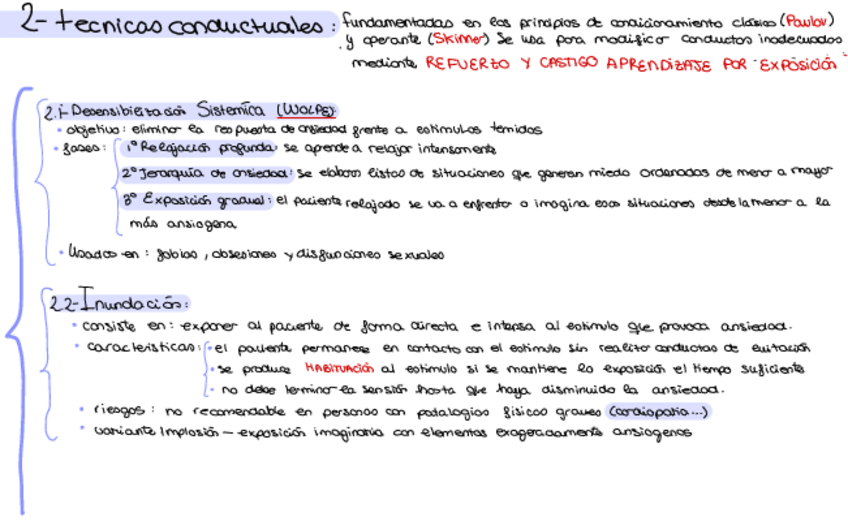 2- tecnicas conductuales: fundamentadas en los principios de condicionamiento clasico (Paulov)
y operante (Skinner) Se usa para modificar conductas inadecuadas
mediante REFUERZO Y CASTIGO APRENDIZAJE POR "EXPOSICIÓN"
2.1- Desensibilización Sistemica (WOLPE):
• objetivo: eliminar la respuesta de ansiedad frente a estimulos temidos
• fases: 1º Relajación profunda: se aprende a relajar intensamente
2º Jerarquía de ansiedad: se elaboran listas de situaciones que generan miedo ordenadas de menor a mayor
3º Exposición gradual: el paciente relajado se va a enfrentar o imagina esas situaciones desde la menor a la
más ansiogena
• Usados en: fobias, obsesiones y disfunciones sexuales
2.2- Inundación:
• consiste en: exponer al paciente de forma directa e intensa al estimulo que provoca ansiedad.
• caracteristicas: - el paciente permanece en contacto con el estimulo sin realizar conductas de evitación
• se produce HABITUACIÓN al estimulo si se mantiene la exposición el tiempo suficiente
- no debe terminar la sensión hasta que haya disminuido la ansiedad.
• riesgos: no recomendable en personas con patologias fisicas graves (cardiopatia...)
• variante Implosión - exposición imaginaria con elementos exageradamente ansiogenos